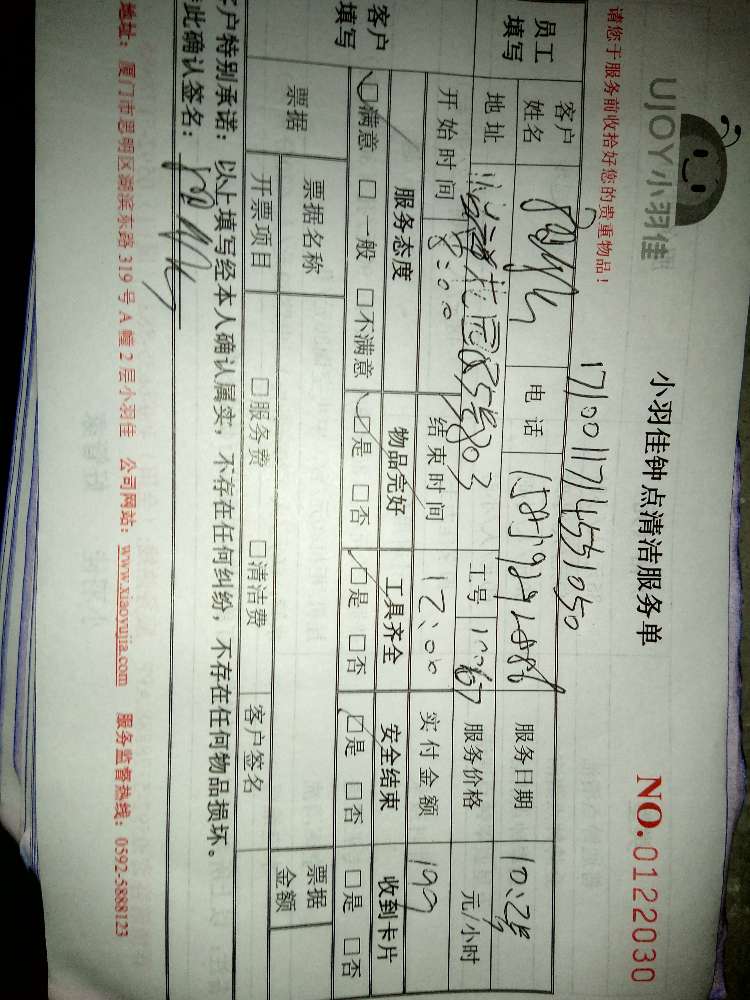 UJOY小羽佳
小羽佳钟点清洁服务单
NO.0122030
请您于服务前收拾好您的贵重物品！
员工填写 客户姓名 电话 服务日期 10.25
地址 工号 服务价格 元/小时
开始时间 8:00 结束时间 12:00 实付金额 199
客户填写 服务态度 物品完好 工具齐全 安全结束 收到卡片
☑满意 □一般 □不满意 ☑是 □否 ☑是 □否 ☑是 □否 □是 □否
票据 票据名称 票据金额
开票项目 □服务费 □清洁费 客户签名
客户特别承诺：以上填写经本人确认属实，不存在任何纠纷，不存在任何物品损坏。
此确认签名：
地址：厦门市思明区湖滨东路319号A幢2层小羽佳 公司网站：www.xiaoyujia.com 服务监督热线：0592-5888123